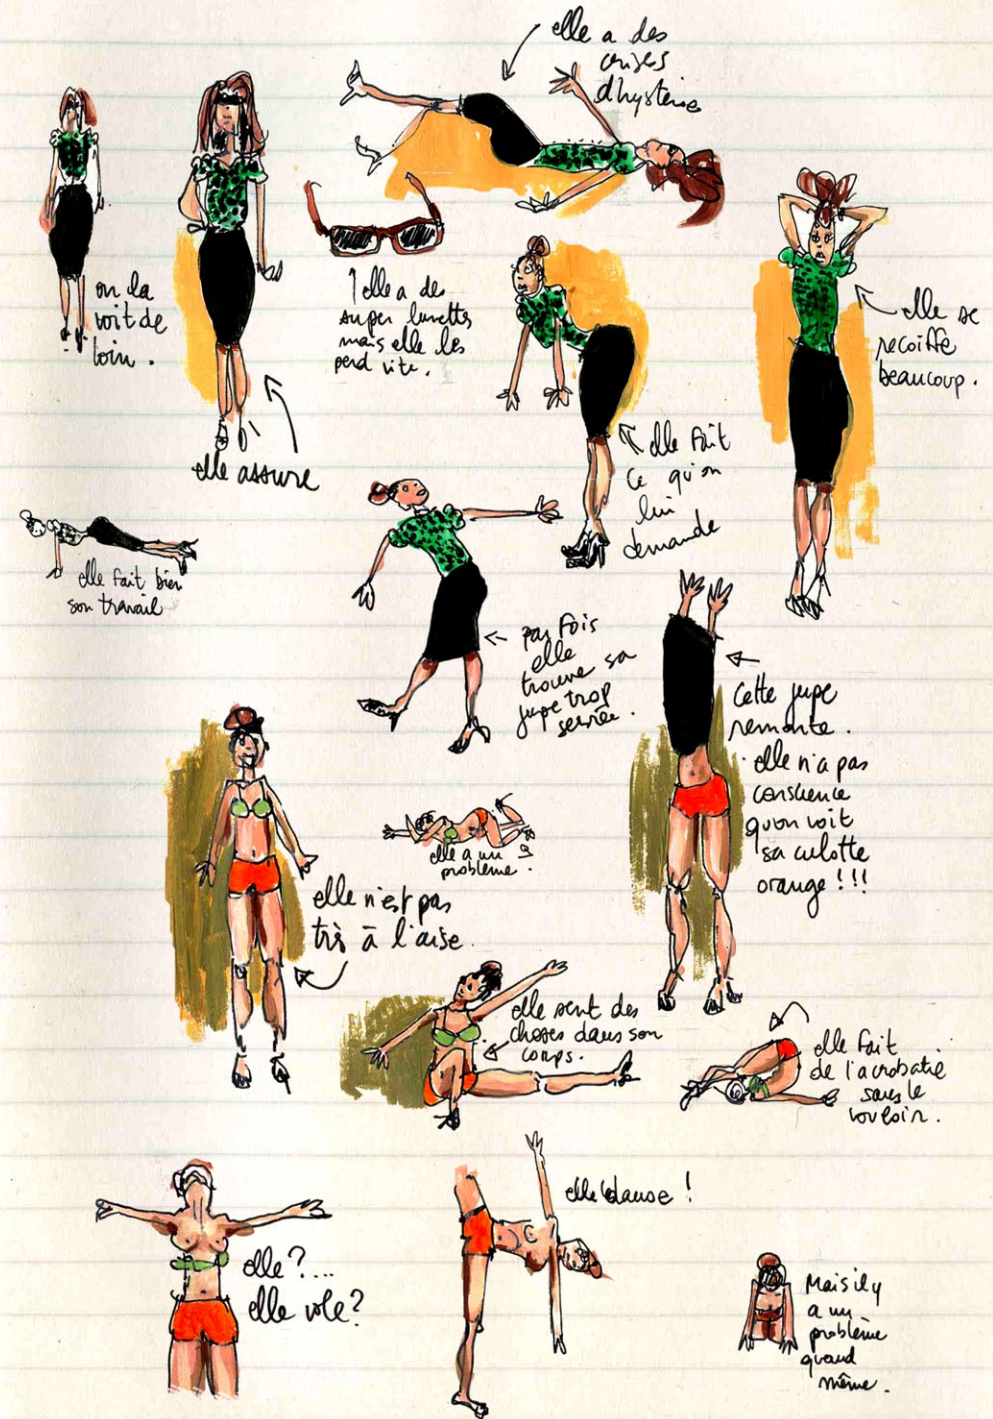 elle a des
crises
d'hystérie
on la
voit de
loin.
elle assure
elle a des
super lunettes
mais elle les
perd vite.
elle se
recoiffe
beaucoup.
elle fait
ce qu'on
lui
demande
elle fait bien
son travail
parfois
elle
trouve sa
jupe trop
serrée.
Cette jupe
remonte.
elle n'a pas
conscience
qu'on voit
sa culotte
orange!!!
elle a un
problème.
elle n'est pas
très à l'aise.
elle sent des
choses dans son
corps.
elle fait
de l'acrobatie
sans le
vouloir.
elle?....
elle vole?
elle danse!
Mais il y
a un
problème
quand
même.